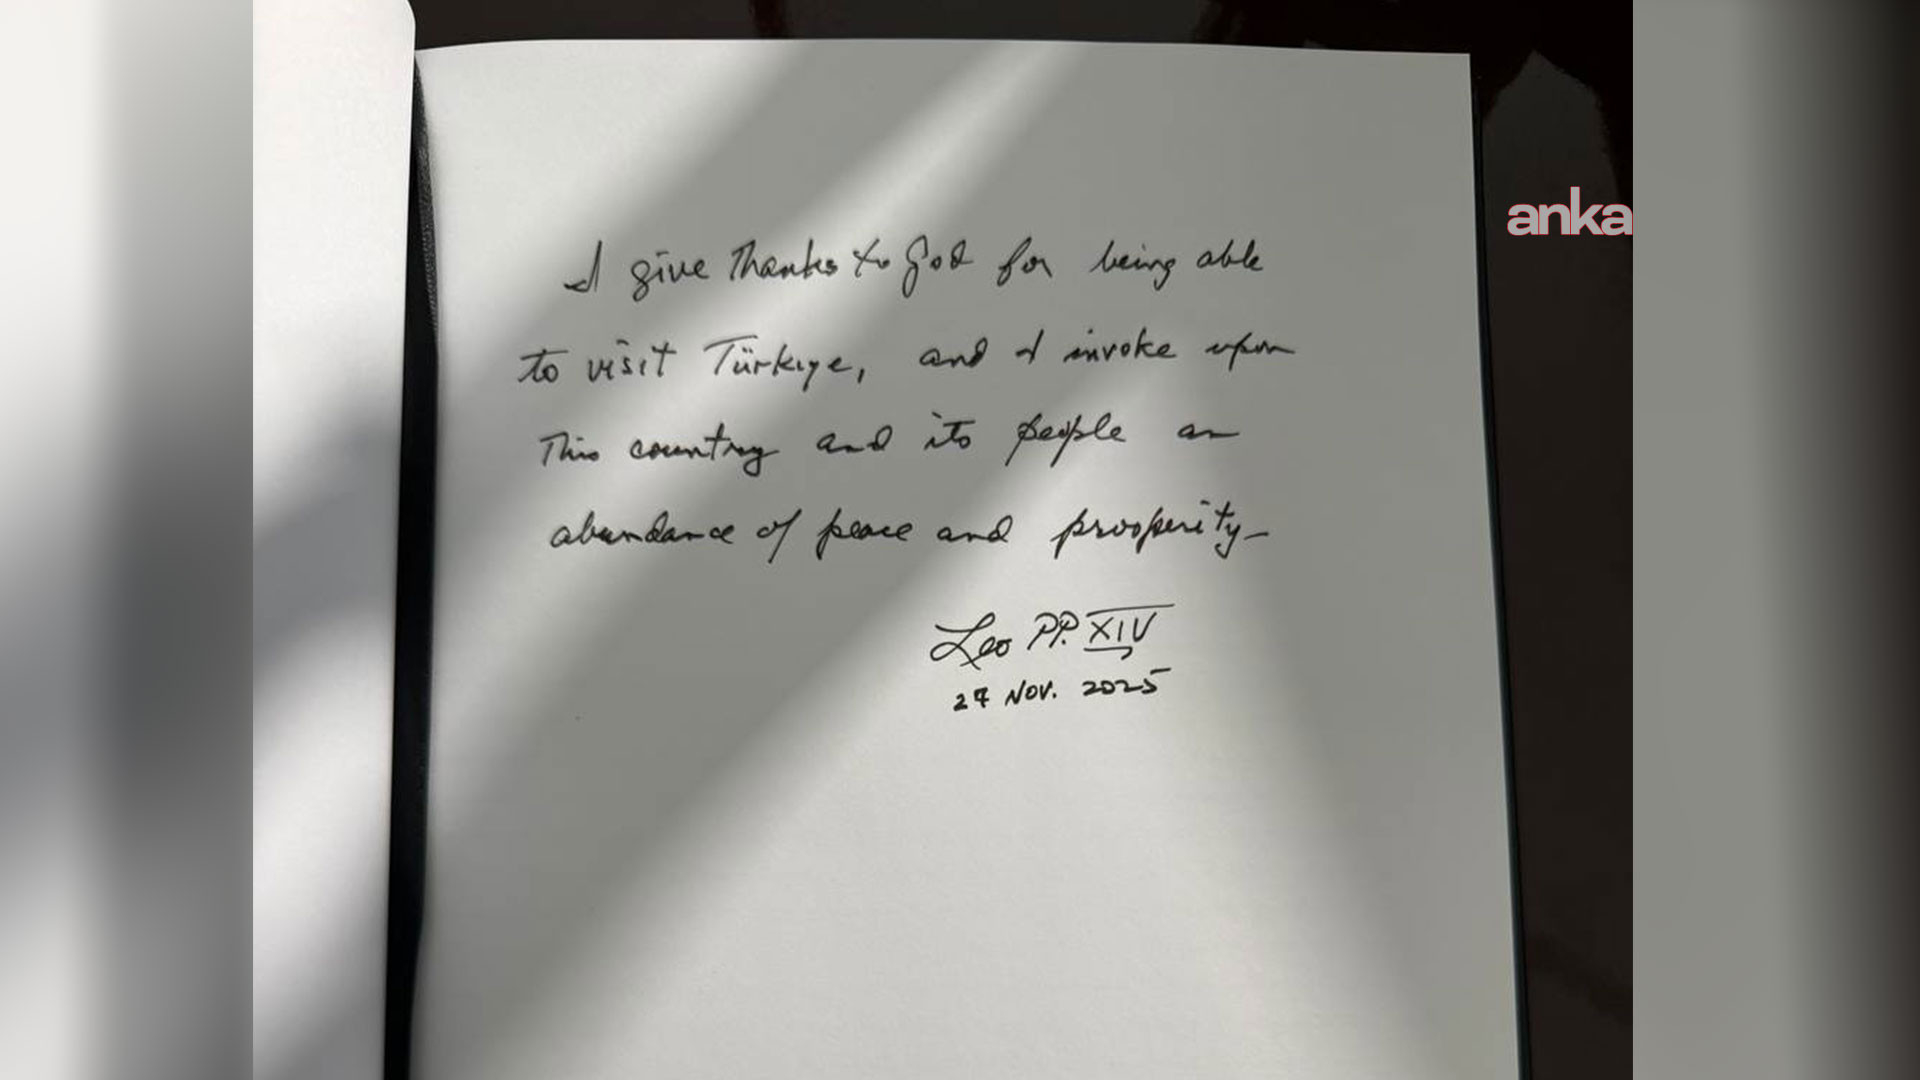 I give thanks to God for being able
to visit Türkiye, and I invoke upon
this country and its people an
abundance of peace and prosperity—
Leo PP. XIV
27 Nov. 2025
anka